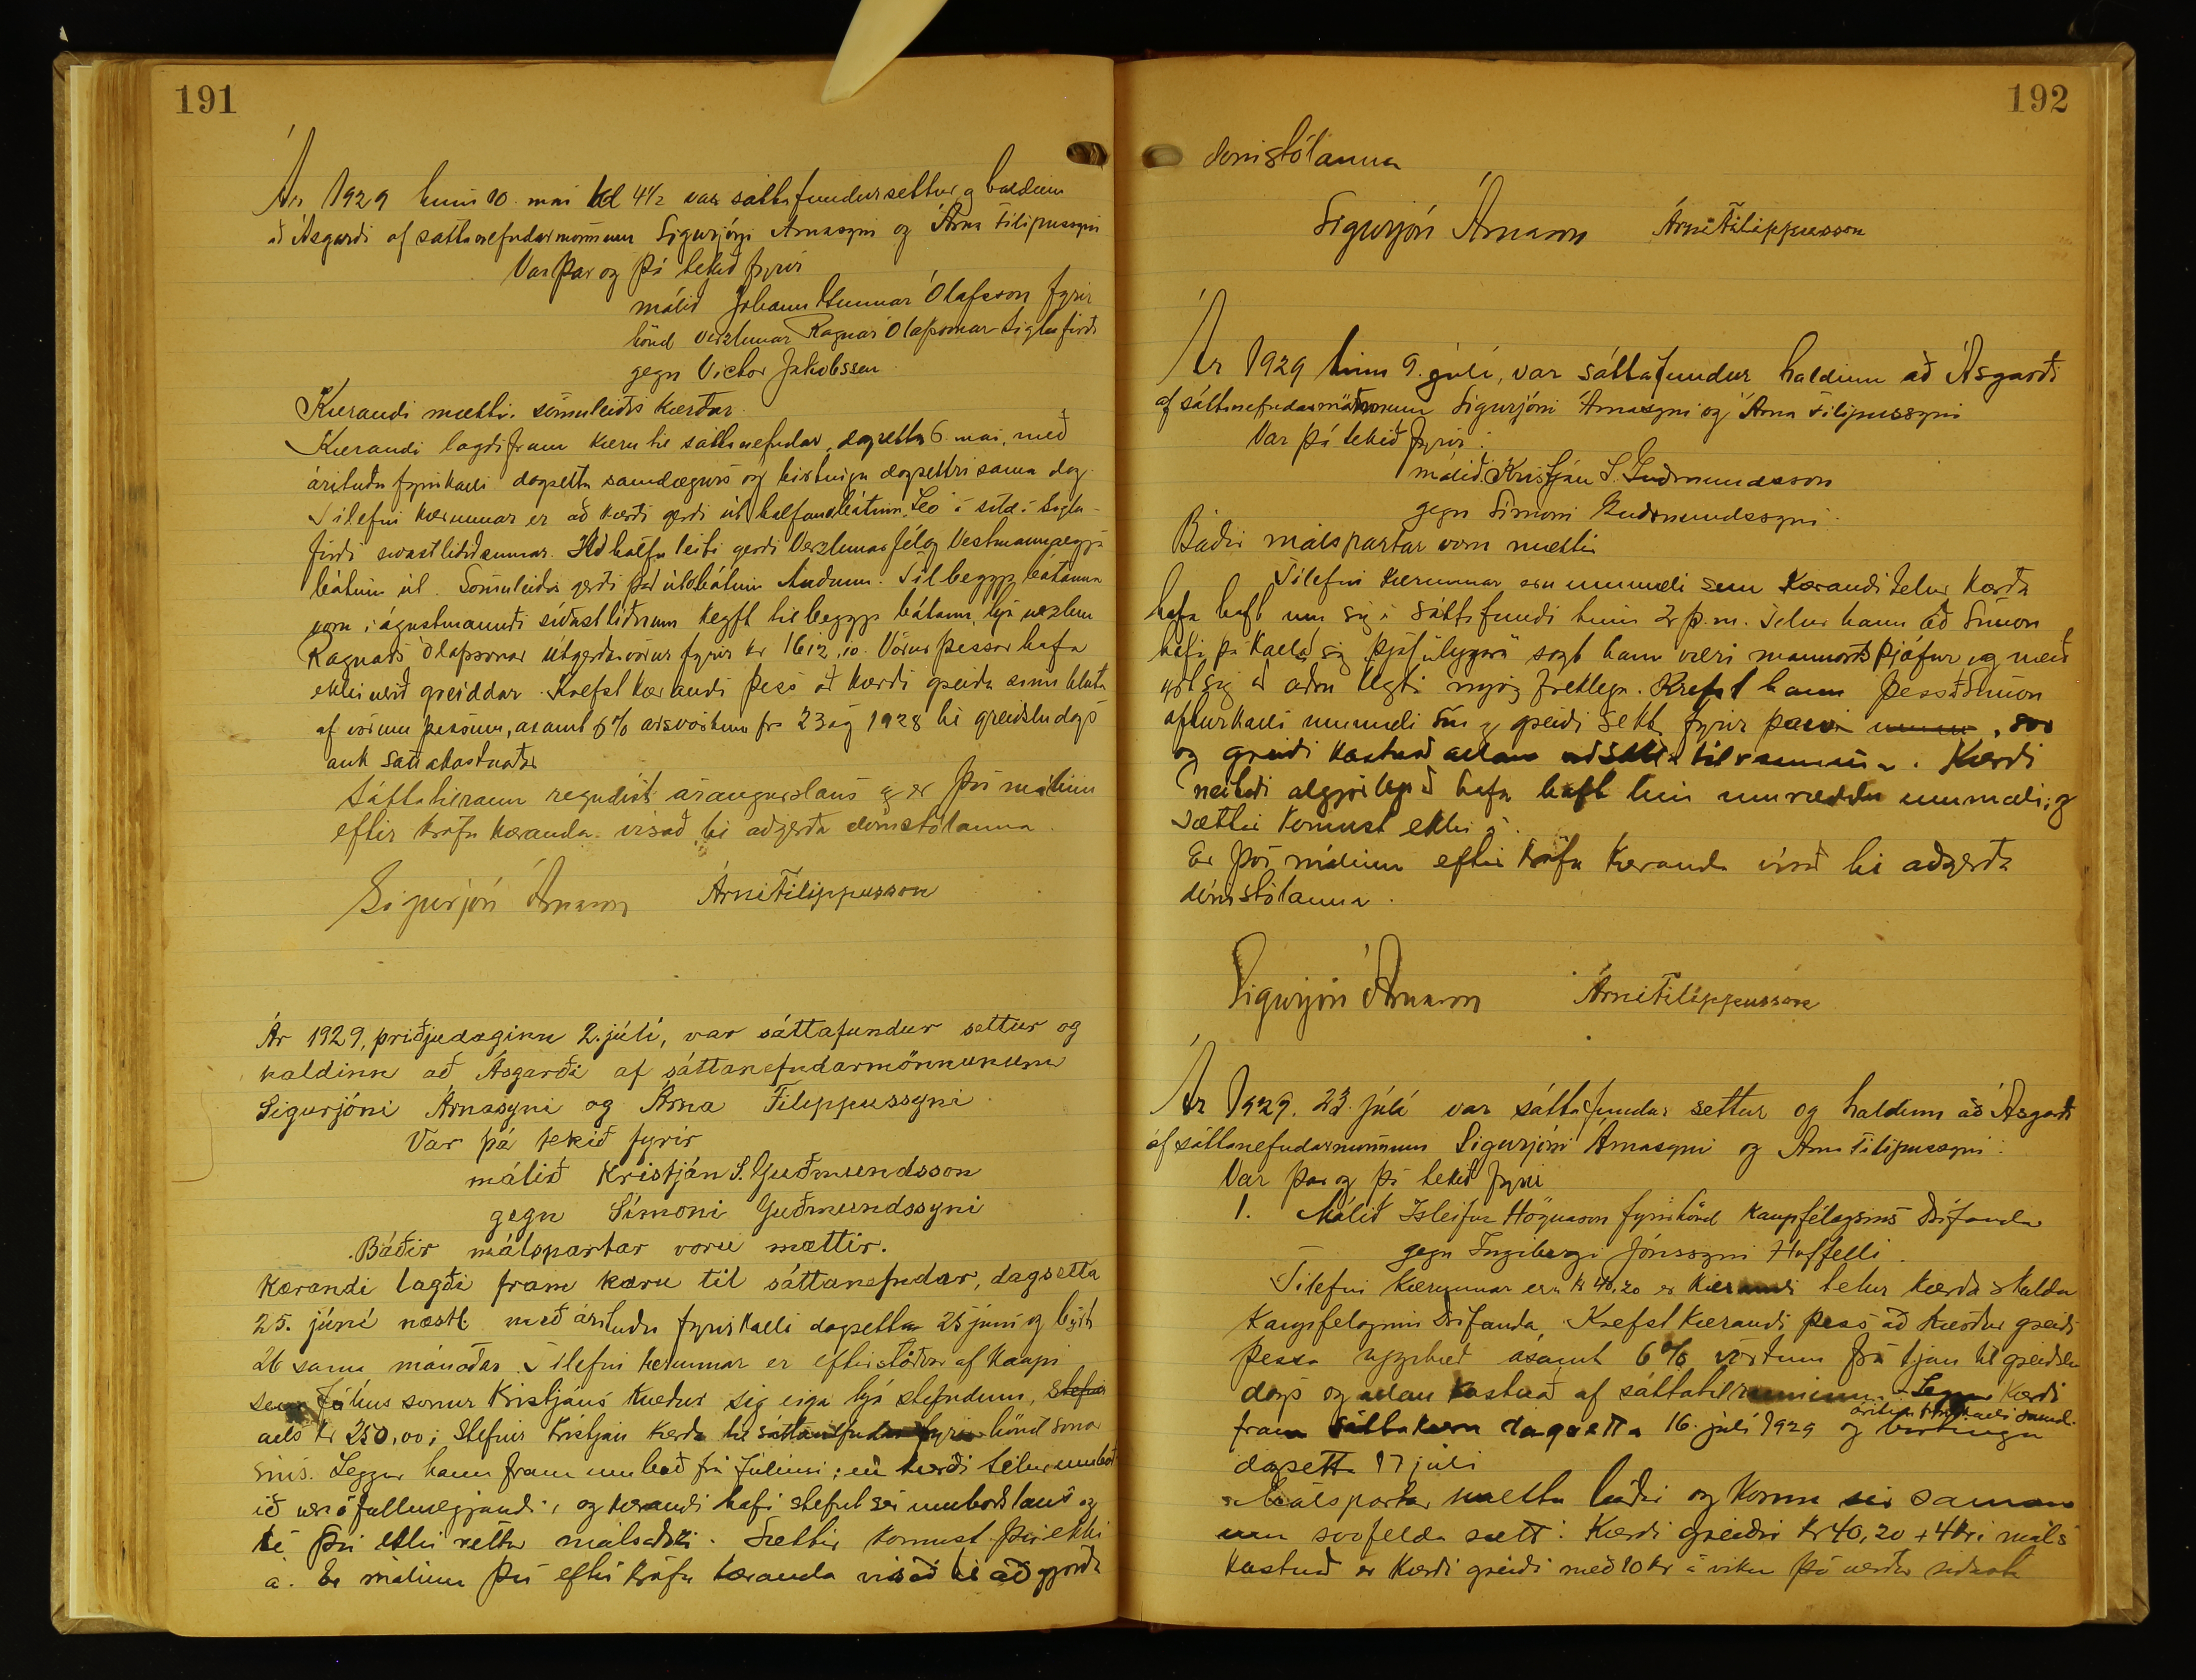 191
Ár 1929 hinn 10. maí kl 4½ var sáttafundur settur og haldinn
að Ásgarði af sáttanefndarmönnum Sigurjóni Árnasyni og Árna Filipussyni
Var þar og þá tekið fyrir
málið Jóhann Gunnar Ólafsson fyrir
hönd verzlunar Ragnars Ólafssonar Siglufirði
gegn Victor Jakobssen
Kærandi mætti. sömuleiðis kærður.
Kærandi lagði fram kæru til sáttanefndar, dagsetta 6. maí, með
áritaðu fyrirkalli dagsettu samdægurs og birtingu dagsettri sama dag
Tilefni kærunnar er að kærði gerði út hálfan bátinn Leo á síld í Siglu-
firði síðastliðið sumar. Að hálfu leiti gerði Verzlunarfélag Vestmannaeyja
bátinn út. Sömuleiðis gerði það út bátinn Auðunn. Til beggja bátanna
voru í ágústmánuði síðastliðnum keypt til beggja bátanna, hjá verzlun
Ragnars Ólafssonar útgerðarvörur fyrir kr 1612,10. Vörur þessar hafa
ekki verið greiddar. Krefst kærandi þess að kærði greiði sinn hluta
af vörum þessum, ásamt 6% ársvöxtum frá 23 ág 1928 til greiðsludags
auk sáttakostnaðar
Sáttatilraun reyndist árangurslaus og er því málinu
eftir kröfu kæranda vísað til aðgerða dómstólanna.
Sigurjón Árnason Árni Filippusson
Ár 1929, þriðjudaginn 2. júlí, var sáttafundur settur og
haldinn að Ásgarði af sáttanefndarmönnunum
Sigurjóni Árnasyni og Árna Filippussyni.
Var þá tekið fyrir
málið Kristján S. Guðmundsson
gegn Símoni Guðmundssyni
Báðir málspartar voru mættir.
Kærandi lagði fram kæru til sáttanefndar, dagsetta
25. júní næstl. með árituðu fyrirkalli dagsettu 25 júní og birt
26 sama mánaðar. Tilefni kærunnar er eftirstöðvar af kaupi
sem Júlíus sonur Kristjáns kveður sig eiga hjá stefndum, Stefnir
alls kr 250,00; Stefnir Kristján kærða til sáttanefndar fyrir hönd sonar
síns. Leggur hann fram umboð frá Júlíusi; en kærði telur umboð
ið vera ófullnægjandi, og kærandi hafi stefnt sér umboðslaus og
sé því ekki réttur málsaðili. Sættir komust því ekki
á. Er málinu því eftir kröfu kæranda vísað til aðgjörða
192
dómstólanna
Sigurjón Árnason Árni Filippusson
Ár 1929 hinn 9. júlí, var sáttafundur haldinn að Ásgarði
af sáttanefndarmönnum Sigurjóni Árnasyni og Árna Filipussyni
Var þá tekið fyrir:
málið Kristján S. Guðmundsson
gegn Símoni Guðmundssyni.
Báðir málspartar vóru mættir
Tilefni kærunnar eru ummæli sem kærandi telur kærða
hafa haft um sig á sáttafundi hinn 2 þ.m. Telur hann að Símon
hafi þá kallað sig þjóf, lygara sagt hann væri mannorðsþjófur og með
á sig að aðra lygi mjög freklega. Krefst hann þess að Símon
afturkalli ummæli sín og greiði sekt fyrir þau 800
og greiði kostnað allan af sáttatilrauninni. Kærði
neitaði algjörlega að hafa haft hin umræddu ummæli; og
sættir komust ekki á.
Er því málinu eftir kröfu kæranda vísað til aðgerða
dómstólanna.
Sigurjón Árnason Árni Filippusson
Ár 1929. 23. júlí var sáttafundur settur og haldinn að Ásgarði
af sáttanefndarmönnum Sigurjóni Árnasyni og Árna Filipussyni.
Var þar og þá tekið fyrir
1. Málið Ísleifur Högnason fyrir hönd Kaupfélagsins Drífanda
gegn Ingibergi Jónssyni Hoffelli.
Tilefni kærunnar eru kr 40,20 er kærandi telur kærða skulda
Kaupfélaginu Drífanda. Krefst kærandi þess að kærður greiði
þessa upphæð ásamt 6% vöxtum frá til greiðslu
dags og allan kostnað af sáttatilrauninni. Leggur kærði
fram sáttakæru dagsetta 16. júlí 1929 og birtingu
áritun fyrirkalli samd.
dagsetta 17 júlí
Málspartar mættu báðir og komu sér saman
um svofelda sætt: Kærði greiðir kr 40,20 + 4 kr í máls
kostnað er kærði greiði með 10 kr á viku þá verður síðasta